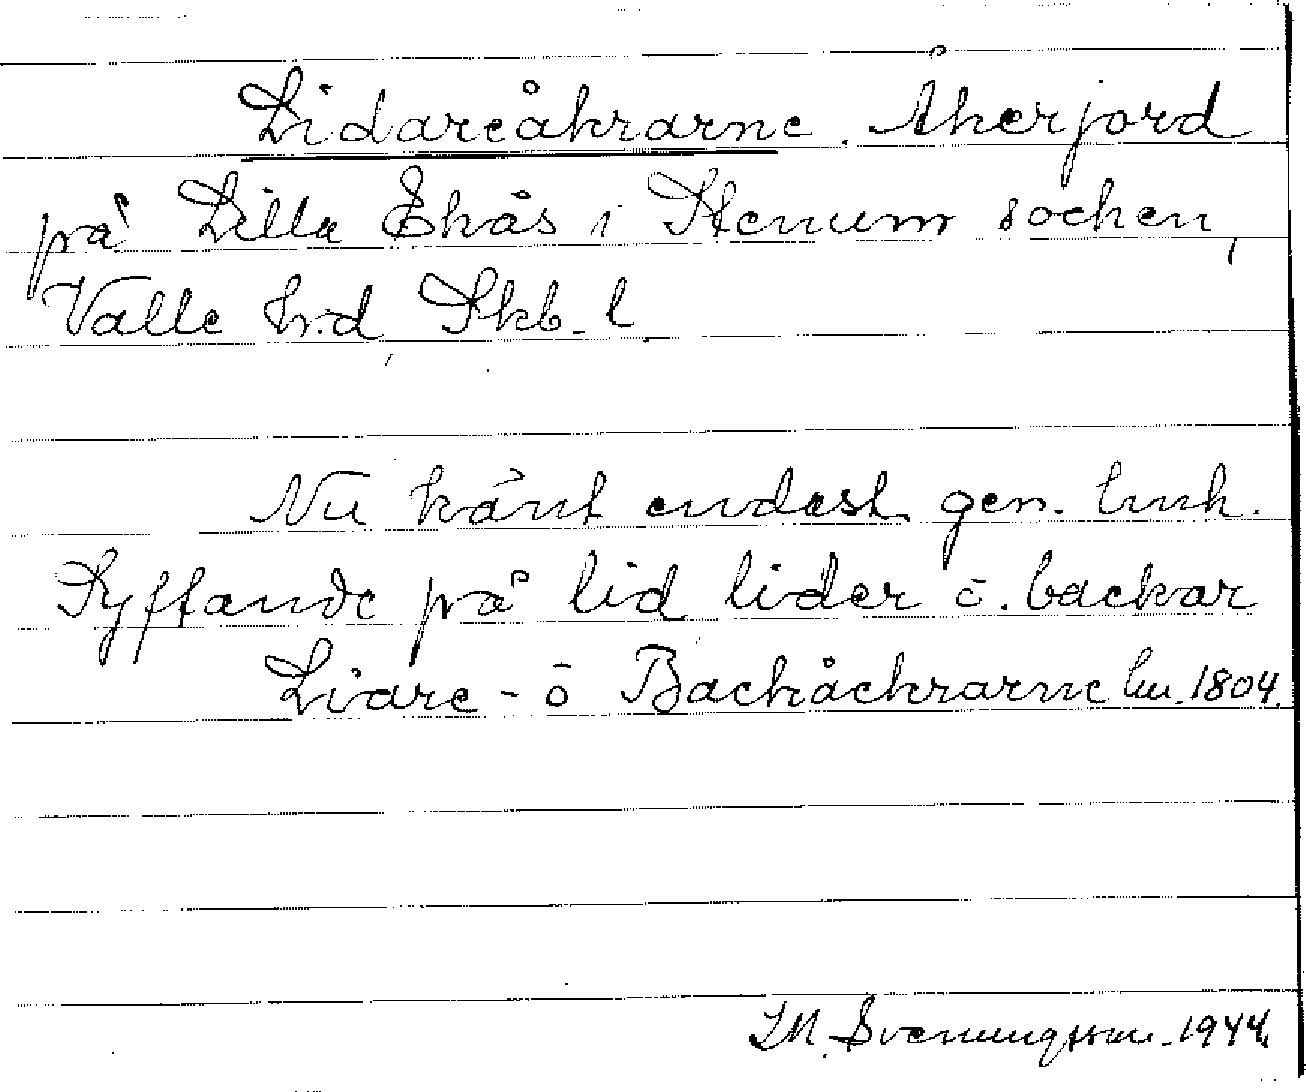 Lidareåkrarne. Åkerjord
på Lilla Ekås i Stenum socken,
Valle hrd, Skb. l.
Nu känt endast gen. lmh.
Syftande på lid lider o. backar
Liare - o Backåckrarne lm. 1804.
I.M. Svenungsson. 1944.